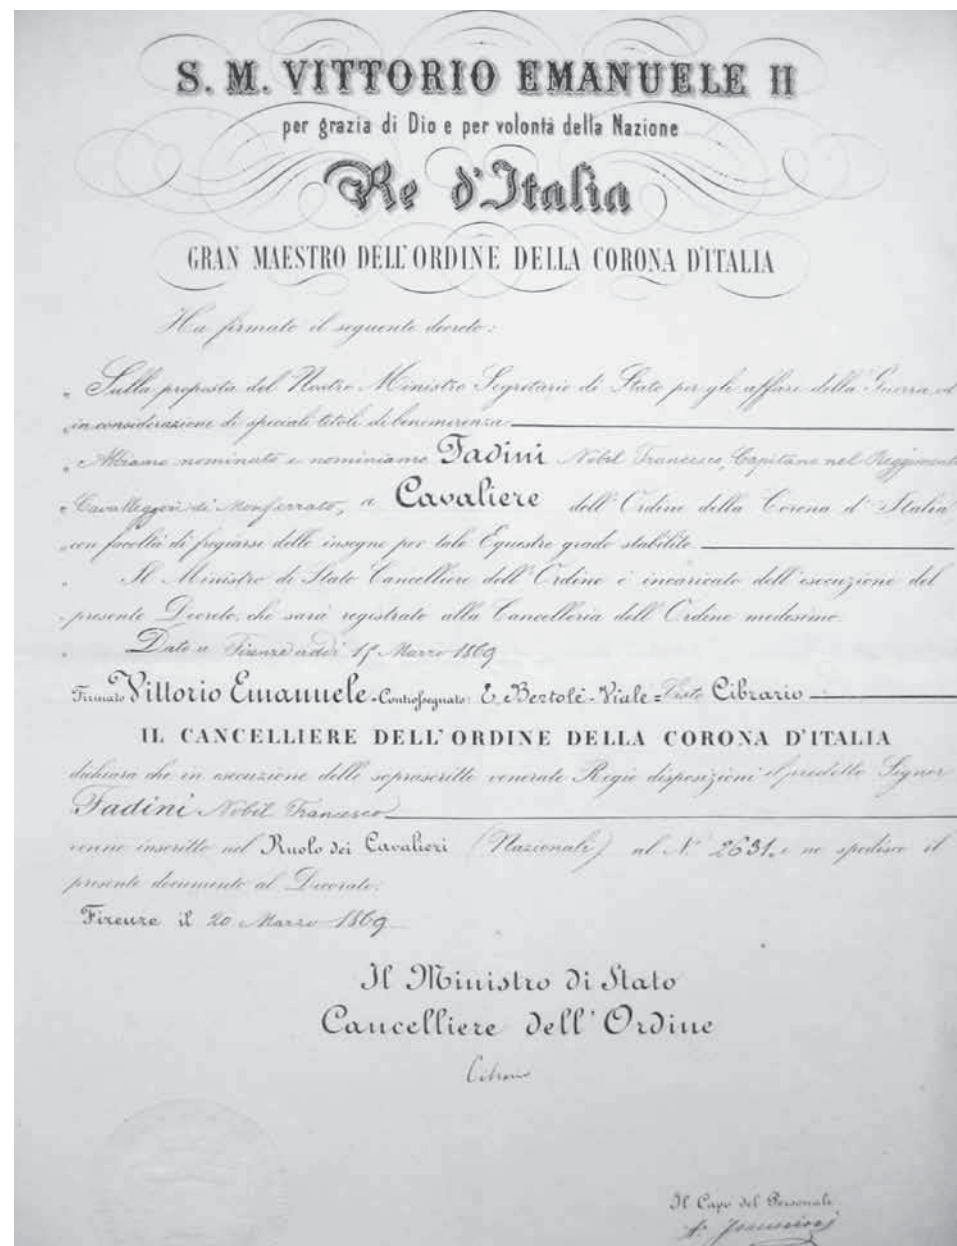 S. M. VITTORIO EMANUELE II
per grazia di Dio e per volontà della Nazione
Re d'Italia
GRAN MAESTRO DELL'ORDINE DELLA CORONA D'ITALIA
Ha firmato il seguente decreto:
Sulla proposta del Nostro Ministro Segretario di Stato per gli affari della Guerra ed
in considerazione di speciali titoli di benemerenza
Abbiamo nominato e nominiamo Fadini Nobil Francesco, Capitano nel Reggimento
Cavalleggeri di Monferrato, a Cavaliere dell'Ordine della Corona d'Italia
con facoltà di fregiarsi delle insegne per tale Equestre grado stabilite.
Il Ministro di Stato Cancelliere dell'Ordine è incaricato dell'esecuzione del
presente Decreto, che sarà registrato alla Cancelleria dell'Ordine medesimo.
Dato a Firenze addì Marzo 1869
Firmato Vittorio Emanuele - Controssegnato: E. Bertolé-Viale = Visto Cibrario
IL CANCELLIERE DELL'ORDINE DELLA CORONA D'ITALIA
dichiara che in esecuzione delle soprascritte venerate Regie disposizioni il predetto Signor
Fadini Nobil Francesco
venne inscritto nel Ruolo dei Cavalieri (Nazionali) al N.° 2631. e ne spedisce il
presente documento al Decorato.
Firenze il 20 Marzo 1869
Il Ministro di Stato
Cancelliere dell'Ordine
Cibrario
Il Capo del Personale